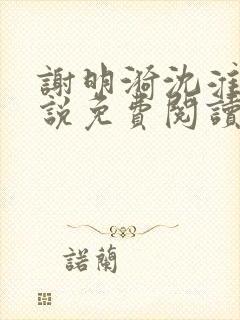 謝明漪沈淮
說免費閱讀
諾蘭